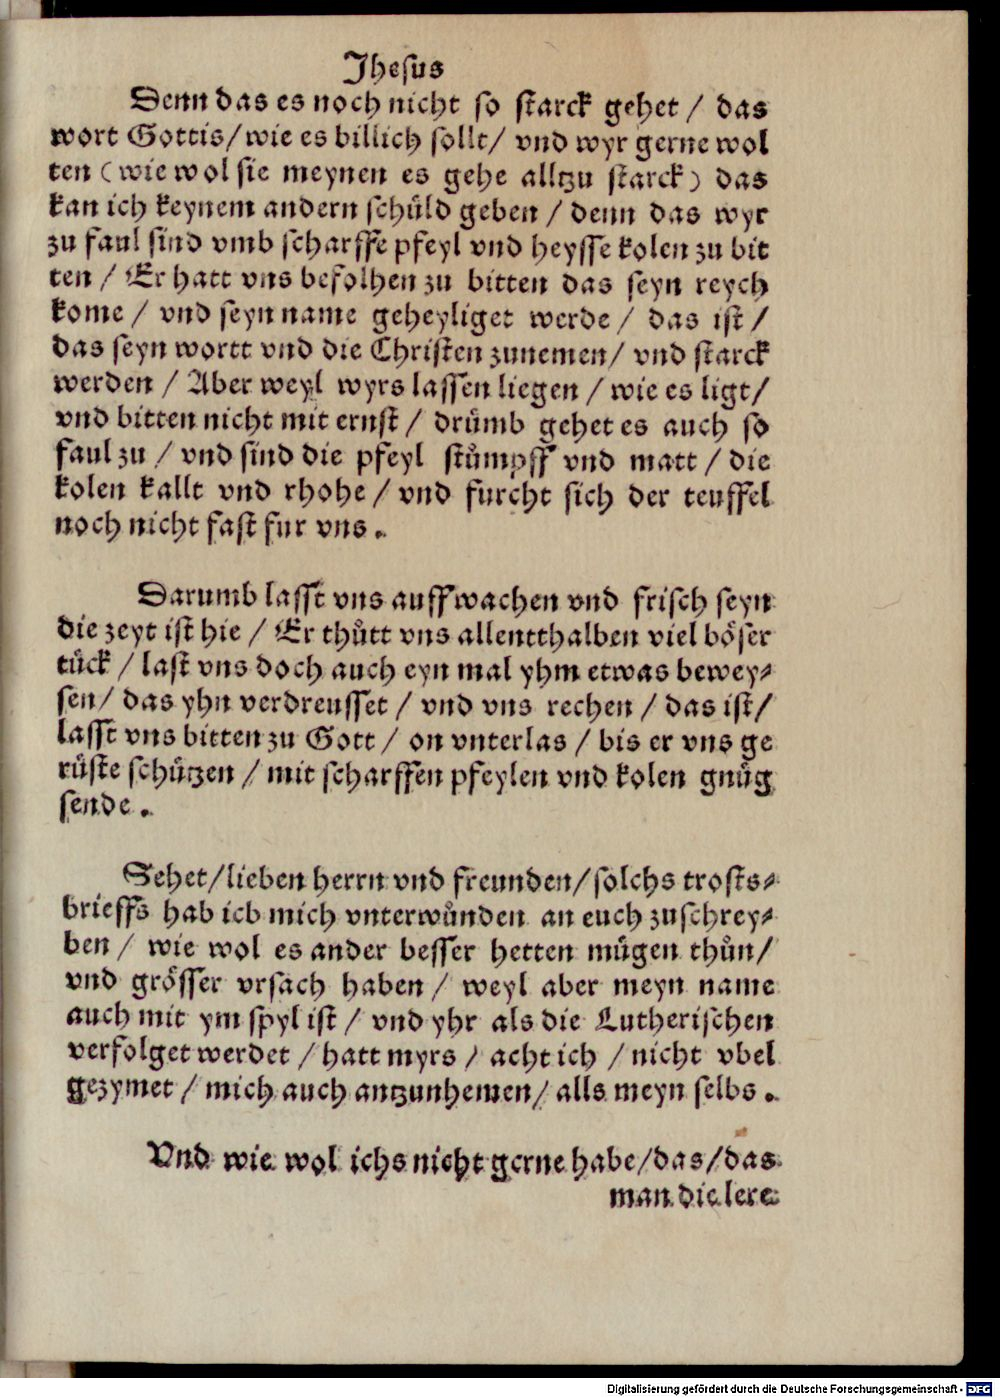 Jhesus
Denn das es noch nicht so starck gehet / das
wort Gottis / wie es billich sollt / vnd wyr gerne wol
ten ( wie wol sie meynen es gehe alltzu starck ) das
kan ich keynem andern schůld geben / denn das wyr
zu faul sind vmb scharffe pfeyl vnd heysse kolen zu bit
ten / Er hatt vns befolhen zu bitten das seyn reych
kome / vnd seyn name geheyliget werde / das ist /
das seyn wortt vnd die Christen zunemen / vnd starck
werden / Aber weyl wyrs lassen liegen / wie es ligt /
vnd bitten nicht mit ernst / drůmb gehet es auch so
faul zu / vnd sind die pfeyl stůmpff vnd matt / die
kolen kallt vnd rhohe / vnd furcht sich der teuffel
noch nicht fast fur vns .
Darumb lasst vns auffwachen vnd frisch seyn
die zeyt ist hie / Er thůtt vns allentthalben viel bôser
tůck / last vns doch auch eyn mal yhm etwas bewey⸗
sen / das yhn verdreusset / vnd vns rechen / das ist /
lasst vns bitten zu Gott / on vnterlas / bis er vns ge
růste schůtzen / mit scharffen pfeylen vnd kolen gnůg
sende .
Sehet / lieben herrn vnd freunden / solchs trosts⸗
brieffs hab ich mich vnterwůnden an euch zuschrey⸗
ben / wie wol es ander besser hetten můgen thůn /
vnd grôsser vrsach haben / weyl aber meyn name
auch mit ym spyl ist / vnd yhr als die Lutherischen
verfolget werdet / hatt myrs / acht ich / nicht vbel
gezymet / mich auch antzunhemen / alls meyn selbs .
Vnd wie wol ichs nicht gerne habe / das / das
man die lere
Digitalisierung gefördert durch die Deutsche Forschungsgemeinschaft - DFG